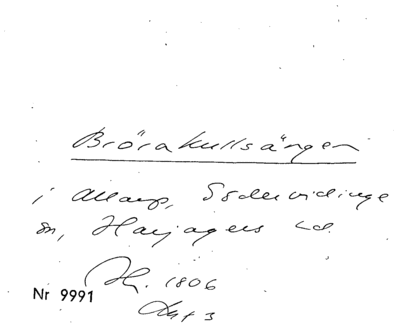 Brörakullsängen
i Allarp, Södervidinge
sn, Harjagers hd.
Hr. 1806
Nr 9991